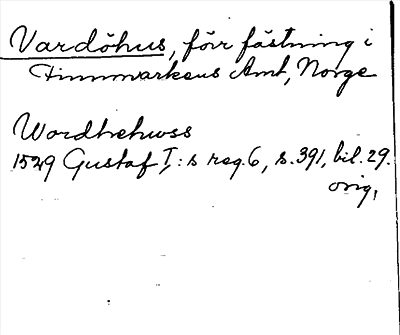 Vardöhus, förr fästning i
Finnmarkens Amt, Norge
Wordhehwss
1529 Gustaf I:s reg. 6, s. 391, bil. 29.
orig.